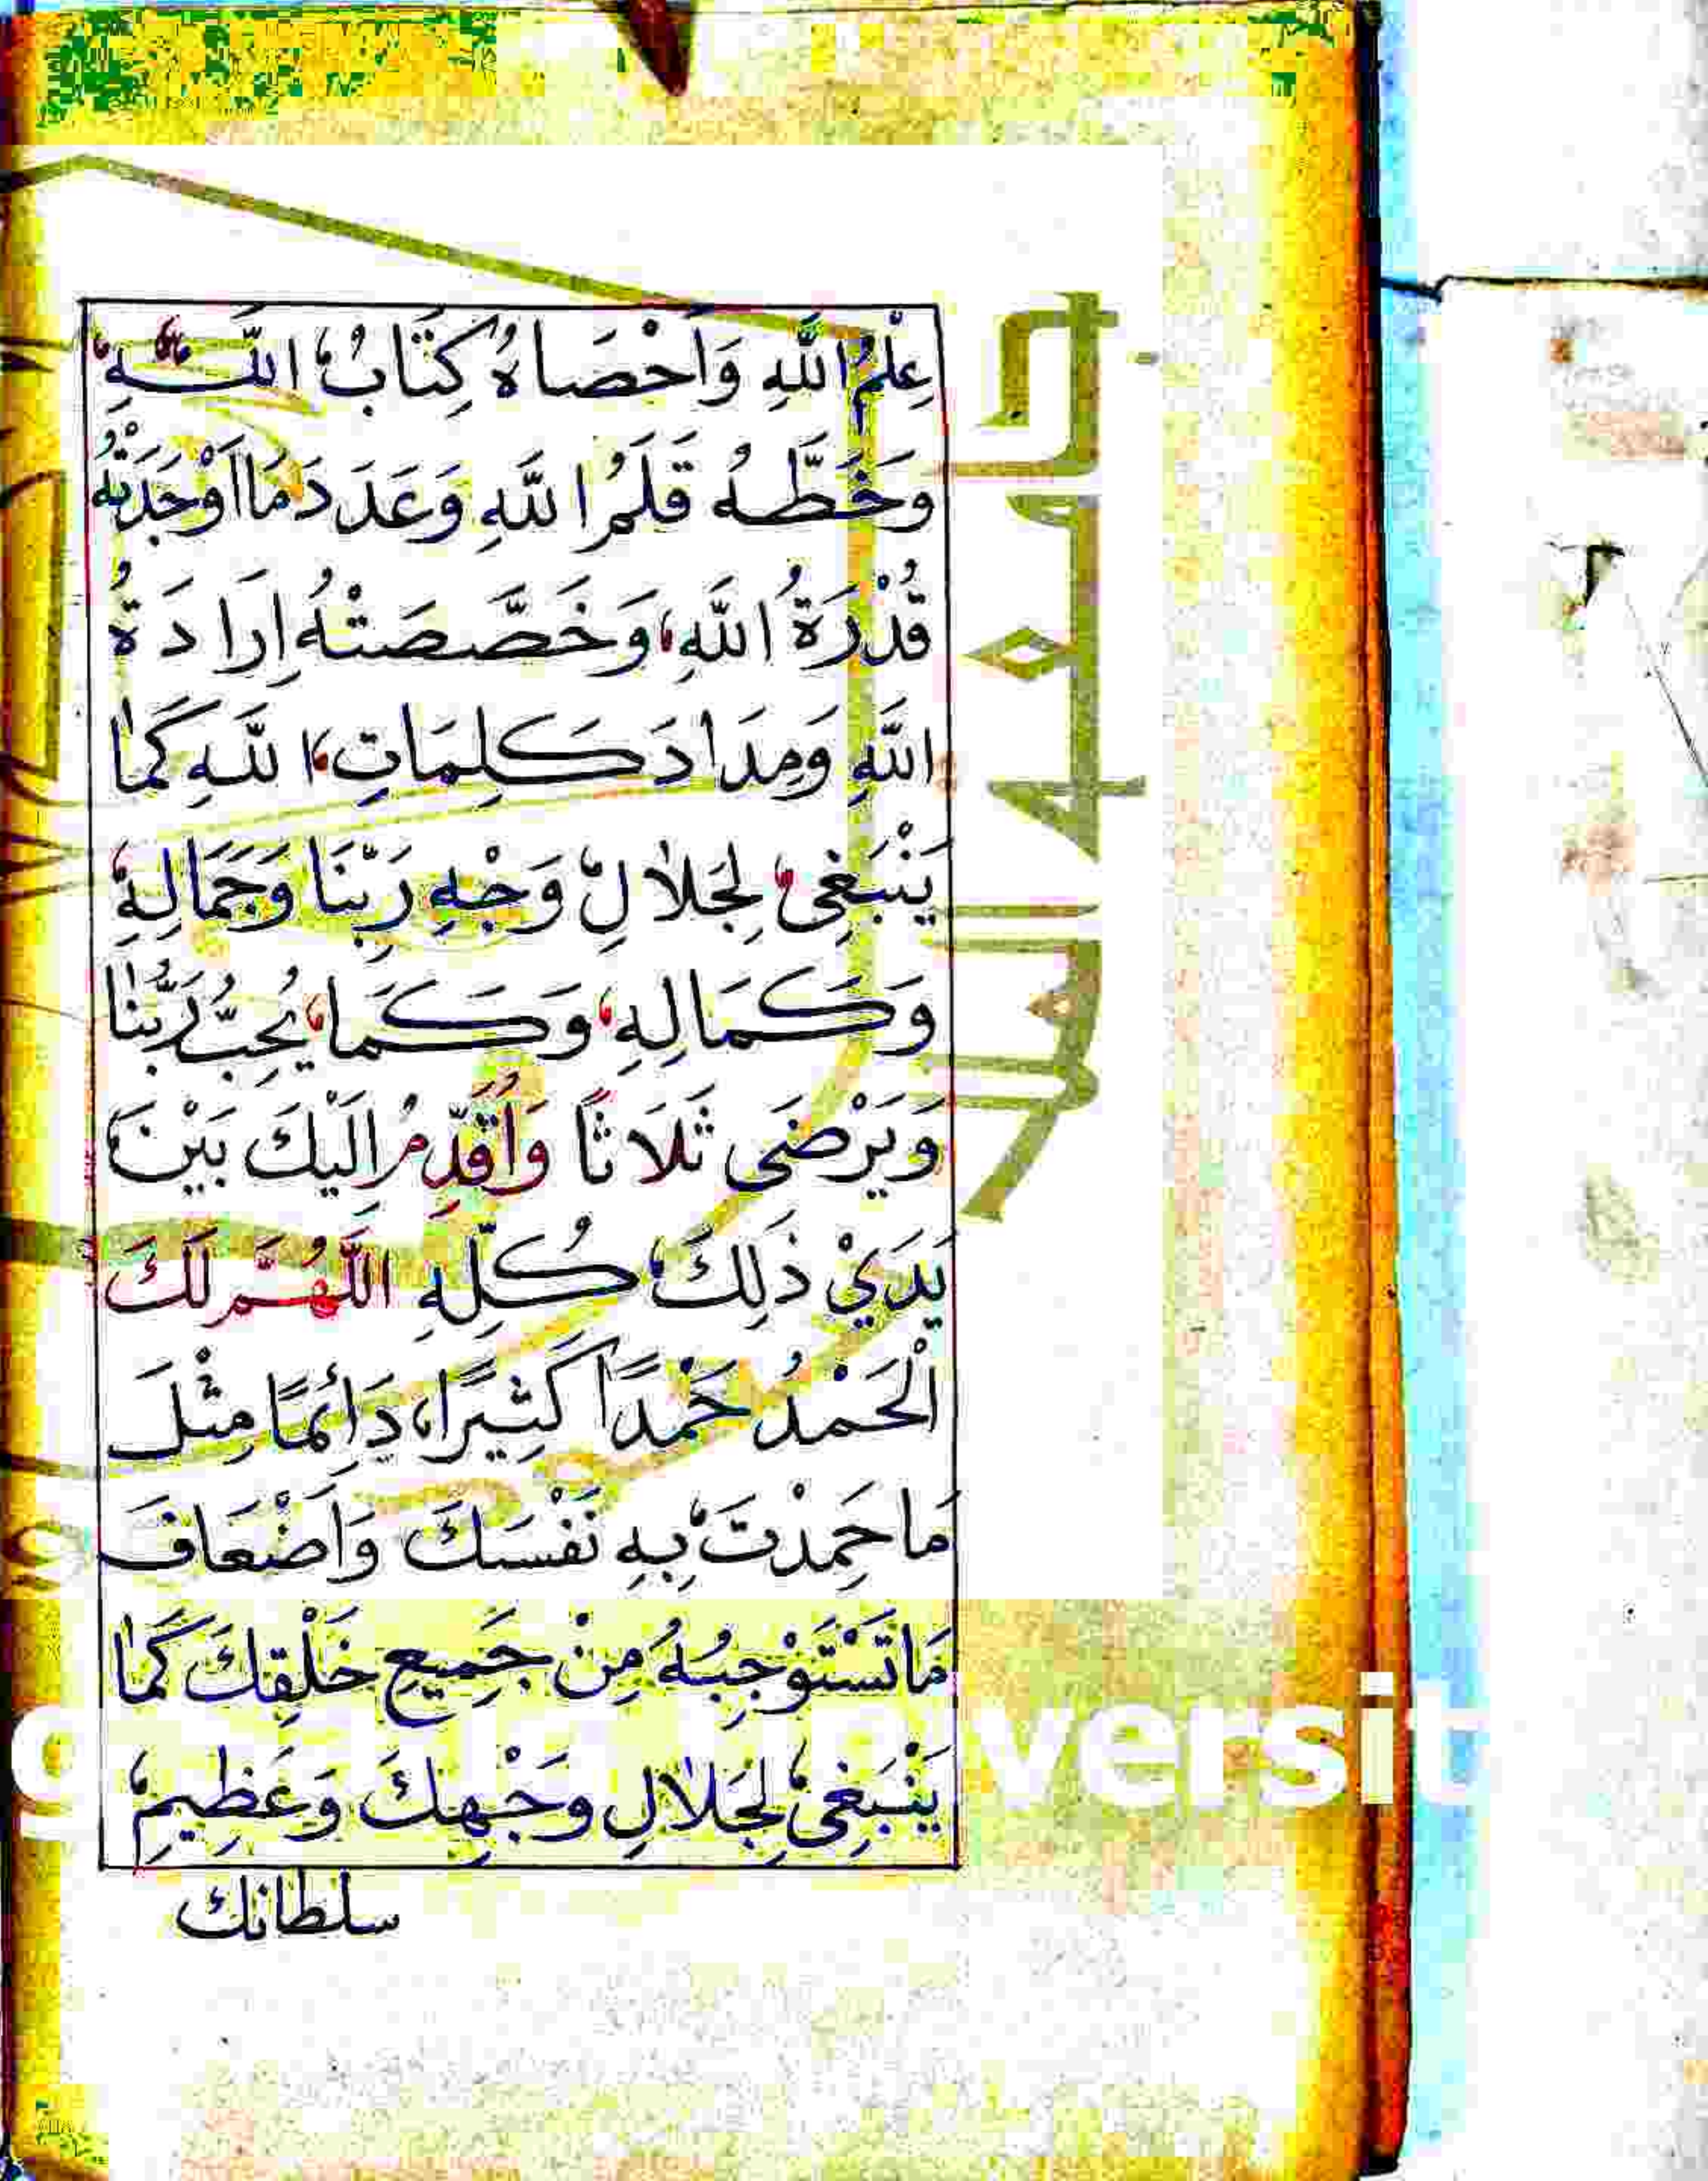 عِلْمُ اللَّهِ وَاَحْصَاهُ كِتَابُ اللَّهِ
وَخَطَّهُ قَلَمُ اللَّهِ وَعَدَدَ مَا اَوْجَدَتْهُ
قُدْرَةُ اللَّهِ وَخَصَّصَتْهُ اِرَادَةُ
اللَّهِ وَمِدَادَ كَلِمَاتِ اللَّهِ كَمَا
يَنْبَغِى لِجَلَالِ وَجْهِ رَبِّنَا وَجَمَالِهِ
وَكَمَالِهِ وَكَمَا يُحِبُّ رَبُّنَا
وَيَرْضَى ثَلَاثًا وَاُقَدِّمُ اِلَيْكَ بَيْنَ
يَدَيْ ذَلِكَ كُلِّهِ اللَّهُمَّ لَكَ
الْحَمْدُ حَمْدًا كَثِيرًا دَائِمًا مِثْلَ
مَا حَمِدْتَ بِهِ نَفْسَكَ وَاَضْعَافَ
مَا تَسْتَوْجِبُهُ مِنْ جَمِيعِ خَلْقِكَ كَمَا
يَنْبَغِى لِجَلَالِ وَجْهِكَ وَعَظِيمِ
سلطانك
versit